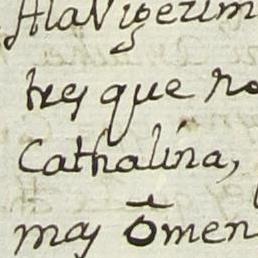 Ala Vigezim
trez que no
Cathalina,
maz Omen